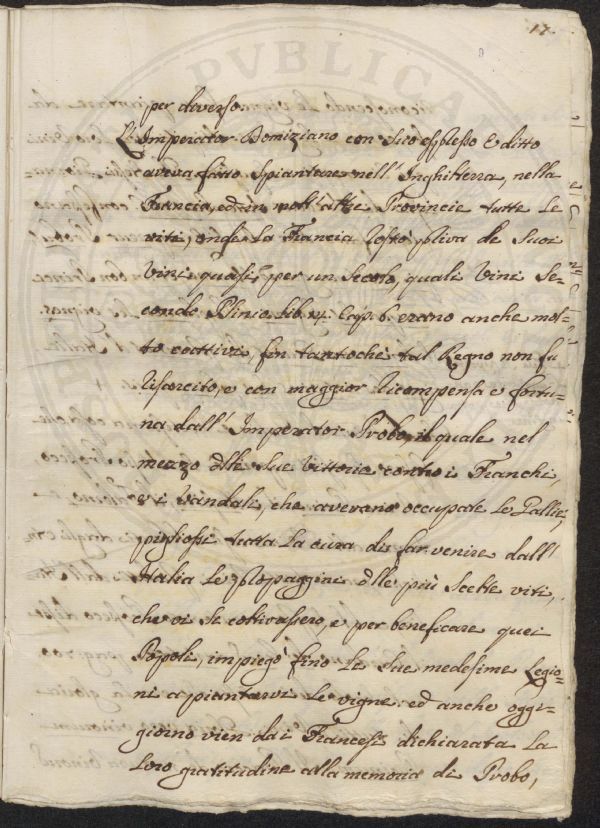 17.
per diverso.
L'Imperator Domiziano con suo espresso Editto
aveva fatto spiantare nell'Inghilterra, nella
Francia, ed in molt'altre Provincie tutte le
viti, onde la Francia restò priva de suoi
Vini quasi per un secolo, quali Vini se-
condo Plinio lib. 14. Cap. 6. erano anche mol-
to cattivi, fin tantochè tal Regno non fu
riscorcito, e con maggior ricompensa e fortu-
na dall'Imperator Probo, il quale nel
mezzo dlle sue vittorie contro i Franchi,
e i Vandali, che averano occupate le Gallie,
pigliossi tutta la cura di far venire dall'
Italia le propaggini dlle più scelte viti,
che vi se coltivassero, e per beneficare quei
Popoli, impiegò fino le sue medesime Legio-
ni a piantarvi le vigne: ed anche oggi-
giorno vien dai Francesi dichiarata la
loro gratitudine alla memoria di Probo,